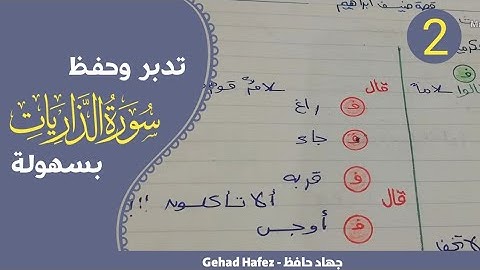 2
تدبر وحفظ
سُورَةُ الذَّارِيَاتِ
بسهولة
قصة ضيف ابراهيم
قال
ف راغ
ف جاء
ف قربه
قال
ألا تأكلون !!!
ف أوجس
جهاد حافظ - Gehad Hafez